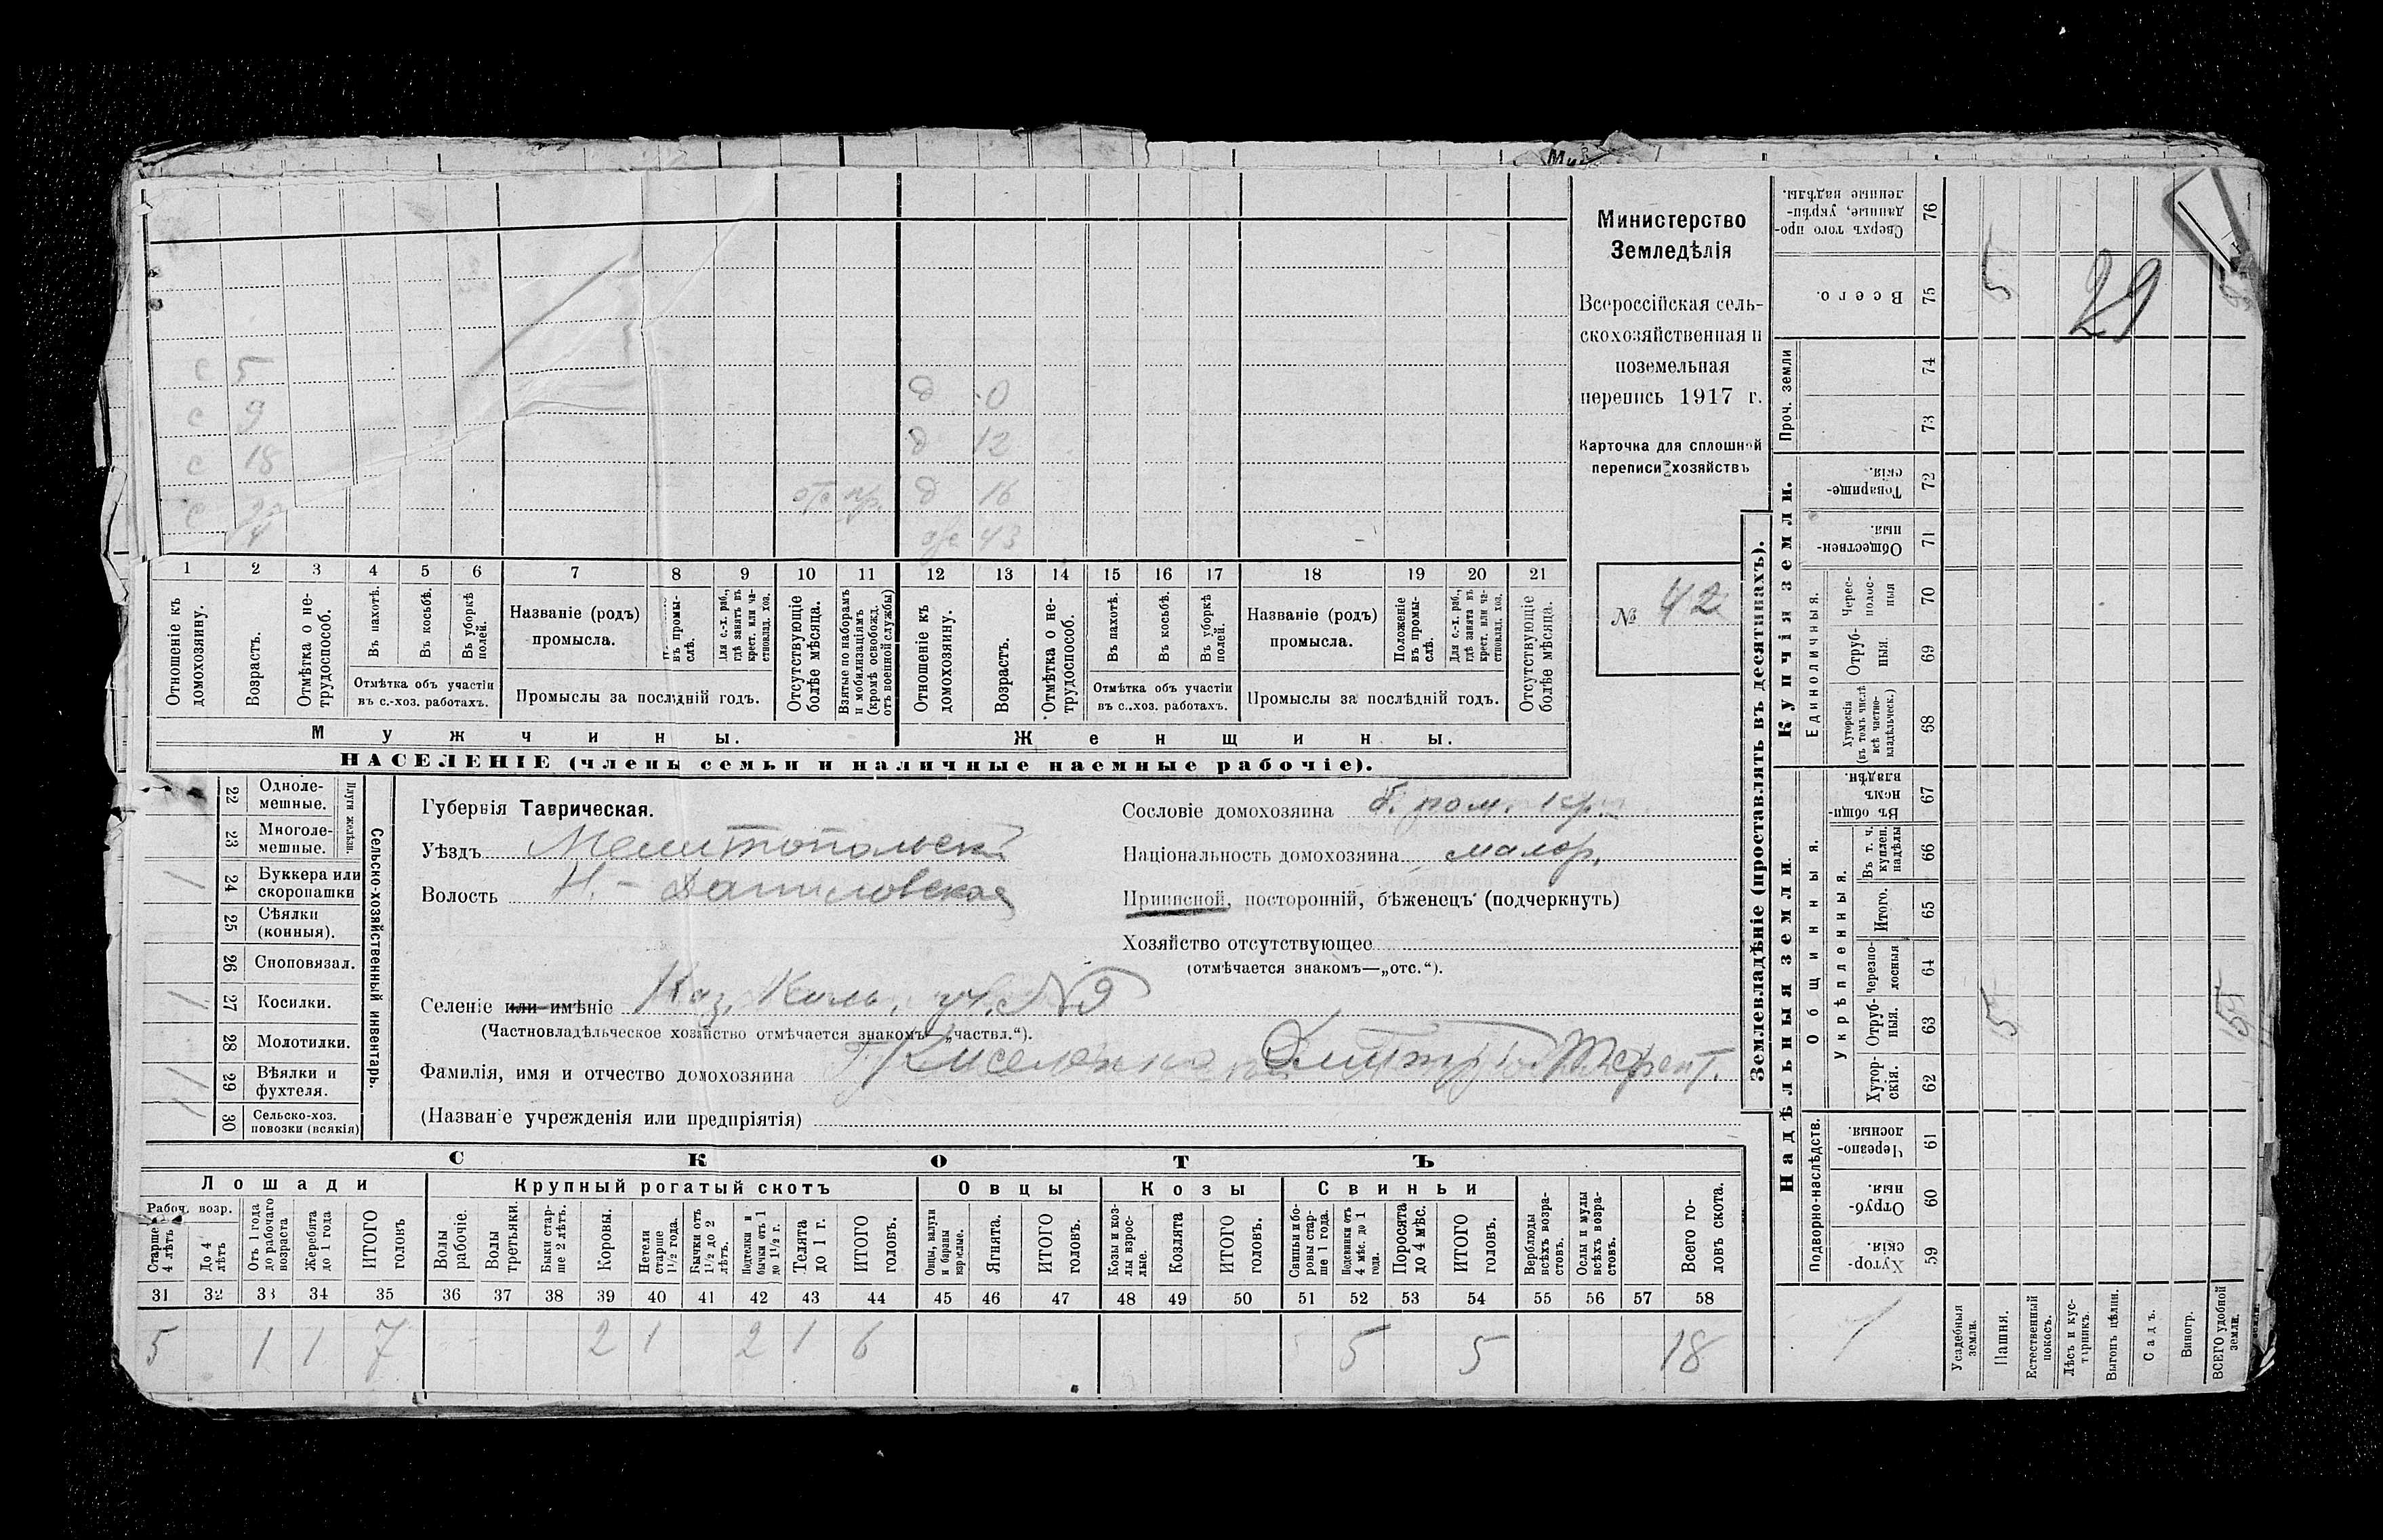 Министерство
Земледѣлія
Всероссійская сель-
скохозяйственная и
поземельная
перепись 1917 г.
Карточка для сплошной
переписи хозяйствъ
№ 42
с 5
с 9
с 18
с
д 0
д 12
отс пр. д 16
43
1 2 3 4 5 6 7 8 9 10 11 12 13 14 15 16 17 18 19 20 21
Отношеніе къ домохозяину.
Возрастъ.
Отмѣтка о не-трудоспособ.
Въ пахотѣ.
Въ косьбѣ.
Въ уборкѣ полей.
Отмѣтка объ участіи
въ с.-хоз. работахъ.
Названіе (родъ)
промысла.
въ промы-слѣ.
Для с.-х. раб., гдѣ занятъ въ крест. или ча-стновлад. хоз.
Промыслы за послѣдній годъ.
Отсутствующіе болѣе мѣсяца.
Взятые по наборамъ и мобилизаціямъ (кромѣ освобожд. отъ военной службы)
Отношеніе къ домохозяину.
Возрастъ.
Отмѣтка о не-трудоспособ.
Въ пахотѣ.
Въ косьбѣ.
Въ уборкѣ полей.
Отмѣтка объ участіи
въ с.-хоз. работахъ.
Названіе (родъ)
промысла.
Положеніе въ промы-слѣ.
Для с.-х. раб., гдѣ занята въ крест. или ча-стновлад. хоз.
Промыслы за послѣдній годъ.
Отсутствующіе болѣе мѣсяца.
Мужчины. Женщины.
НАСЕЛЕНІЕ (члены семьи и наличные наемные рабочіе).
22 Однолемешные.
23 Многолемешные.
Плуги желѣзн.
1 24 Буккера или скоропашки
25 Сѣялки (конныя).
26 Сноповязал.
1 27 Косилки.
28 Молотилки.
1 29 Вѣялки и фухтеля.
1 30 Сельско-хоз. повозки (всякія)
Сельско-хозяйственный инвентарь.
Губернія Таврическая.
Уѣздъ Мелитопольскій
Волость Н.-Даниловская
Селеніе или имѣніе Каз. уч. №9
(Частновладѣльческое хозяйство отмѣчается знакомъ—„частвл.“).
Фамилія, имя и отчество домохозяина Киселенко Дмитр Терент.
(Названіе учрежденія или предпріятія)
Сословіе домохозяина б. пом. кр.
Національность домохозяина малор.
Приписной, посторонній, бѣженецъ (подчеркнуть)
Хозяйство отсутствующее
(отмѣчается знакомъ—„отс.“).
СКОТЪ
Лошади Крупный рогатый скотъ Овцы Козы Свиньи
Рабоч. возр.
Старше 4 лѣтъ
До 4 лѣтъ
Отъ 1 года до рабочаго возраста
Жеребята до 1 года
ИТОГО головъ
Волы рабочіе.
Волы третьяки.
Быки стар-ше 2 лѣтъ.
Коровы.
Нетели старше 1½ года.
Бычки отъ 1½ до 2 лѣтъ.
Подтелки и бычки отъ 1 до 1½ г.
Телята до 1 г.
ИТОГО головъ.
Овцы, валухи и бараны взрослые.
Ягнята.
ИТОГО головъ.
Козы и коз-лы взрос-лые.
Козлята
ИТОГО головъ.
Свиньи и бо-ровы стар-ше 1 года.
Подсвинки отъ 4 мѣс. до 1 года.
Поросята до 4 мѣс.
ИТОГО головъ.
Верблюды всѣхъ возра-стовъ.
Ослы и мулы всѣхъ возра-стовъ.
Всего го-ловъ скота.
31 32 33 34 35 36 37 38 39 40 41 42 43 44 45 46 47 48 49 50 51 52 53 54 55 56 57 58
5 1 1 7 2 1 2 1 6 5 5 18
Землевладѣніе (проставлять въ десятинахъ).
Надѣльныя земли
Купчія земли.
Проч. земли
Сверхъ того про-данные, укрѣп-ленные надѣлы. 76
Всего. 75
74
73
Товарище-скія. 72
Обществен-ныя. 71
Единоличныя.
Черес-полос-ныя 70
Отруб-ныя. 69
Хуторскія (въ томъ числѣ всѣ частно-владѣльческ.) 68
Общинныя.
Въ общин-номъ владѣн. 67
Укрѣпленныя.
Въ т. ч. куплен. надѣлы 66
Итого. 65
Черезпо-лосныя 64
Отруб-ныя. 63
Хутор-скія. 62
Подворно-наслѣдств.
Черезпо-лосныя. 61
Отруб-ныя. 60
Хутор-скія. 59
Усадебныя земли.
Пашня.
Естественный покосъ.
Лѣсъ и кус-тарникъ.
Выгонъ цѣлин.
Садъ.
Виногр.
ВСЕГО удобной земли.
29